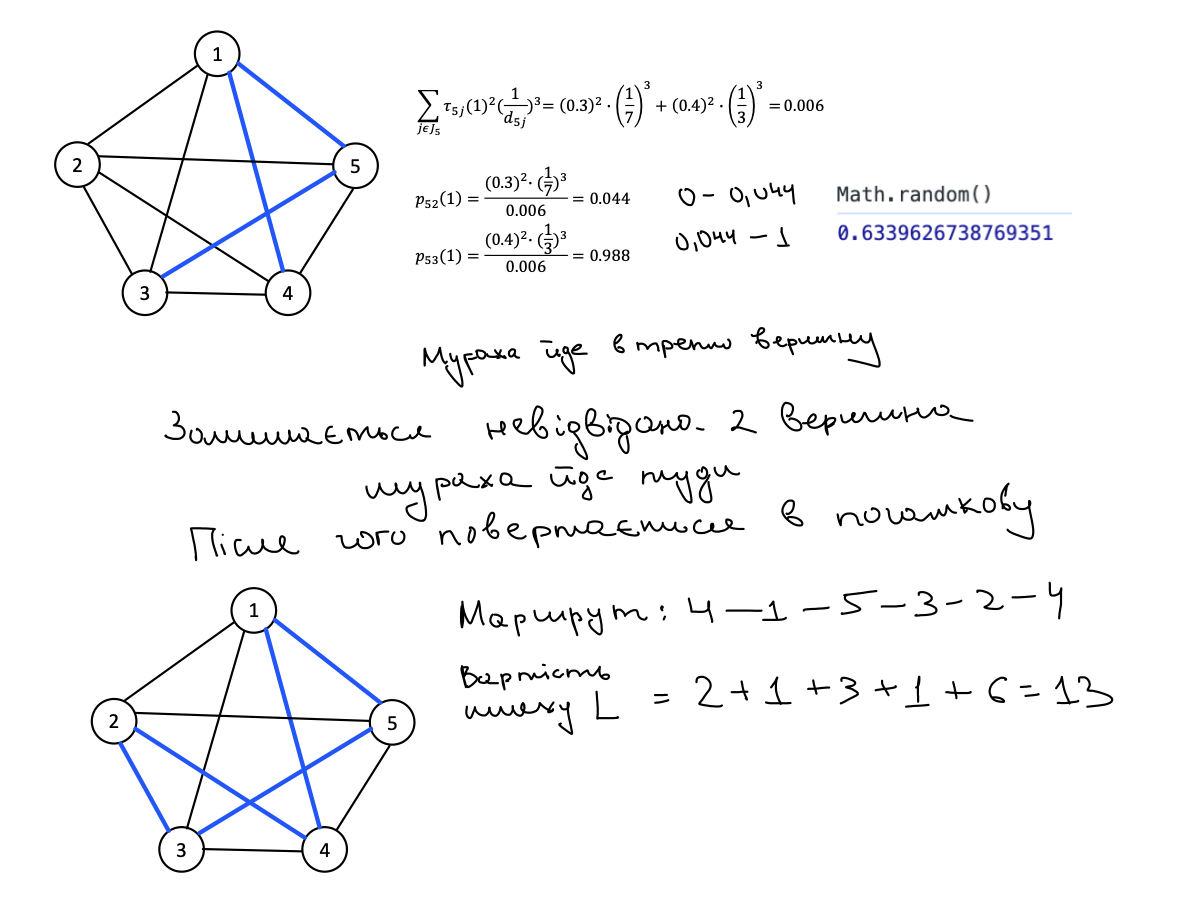 1
2
5
3
4
∑ τ₅ⱼ(1)²(1/d₅ⱼ)³= (0.3)² · (1/7)³ + (0.4)² · (1/3)³ = 0.006
jϵJ₅
p₅₂(1) = (0.3)²· (1/7)³ / 0.006 = 0.044
0 - 0,044
p₅₃(1) = (0.4)²· (1/3)³ / 0.006 = 0.988
0,044 - 1
Math.random()
0.6339626738769351
Мураха йде в третю вершину
Залишається невідвідана 2 вершина
мураха йде туди
Після чого повертається в початкову
1
2
5
3
4
Маршрут: 4 - 1 - 5 - 3 - 2 - 4
Вартість
шляху L = 2 + 1 + 3 + 1 + 6 = 13